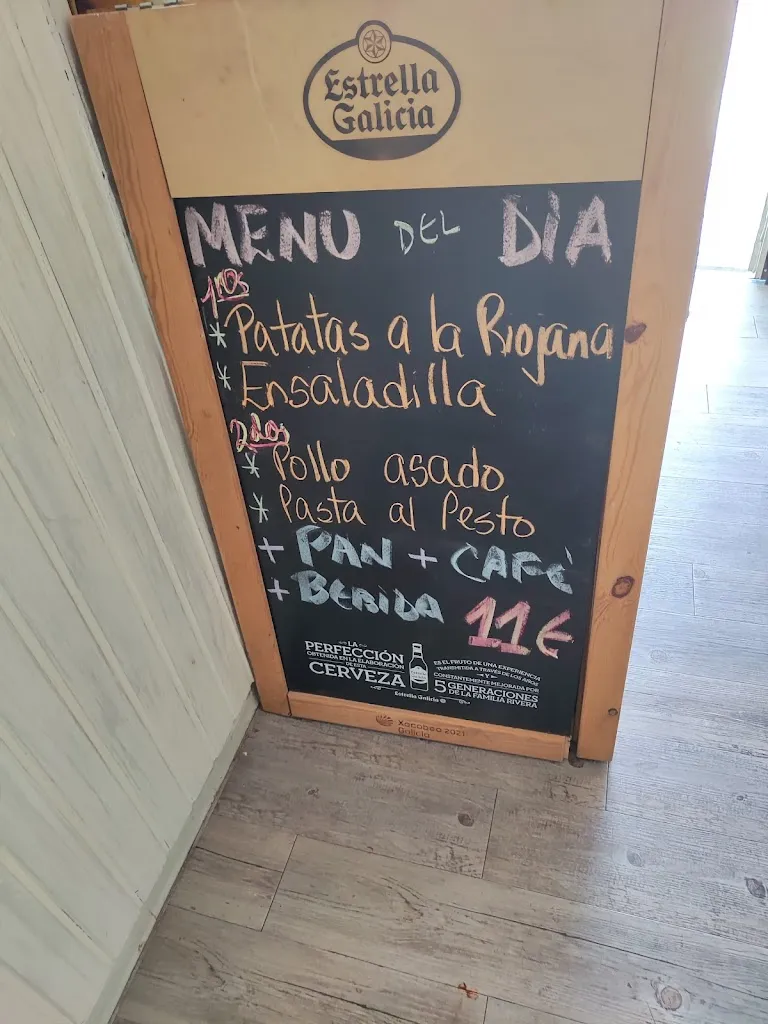 Estrella
Galicia
MENU DEL DIA
1ros
* Patatas a la Riojana
* Ensaladilla
2dos
* Pollo asado
* Pasta al Pesto
+ PAN + CAFÉ
+ BEBIDA 11€
LA
PERFECCIÓN
OBTENIDA EN LA ELABORACIÓN
DE ESTA
CERVEZA
Estrella Galicia
ES EL FRUTO DE UNA EXPERIENCIA
TRANSMITIDA A TRAVÉS DE LOS AÑOS
Y
CONSTANTEMENTE MEJORADA POR
5 GENERACIONES
DE LA FAMILIA RIVERA
Xacobeo 2021
Galicia